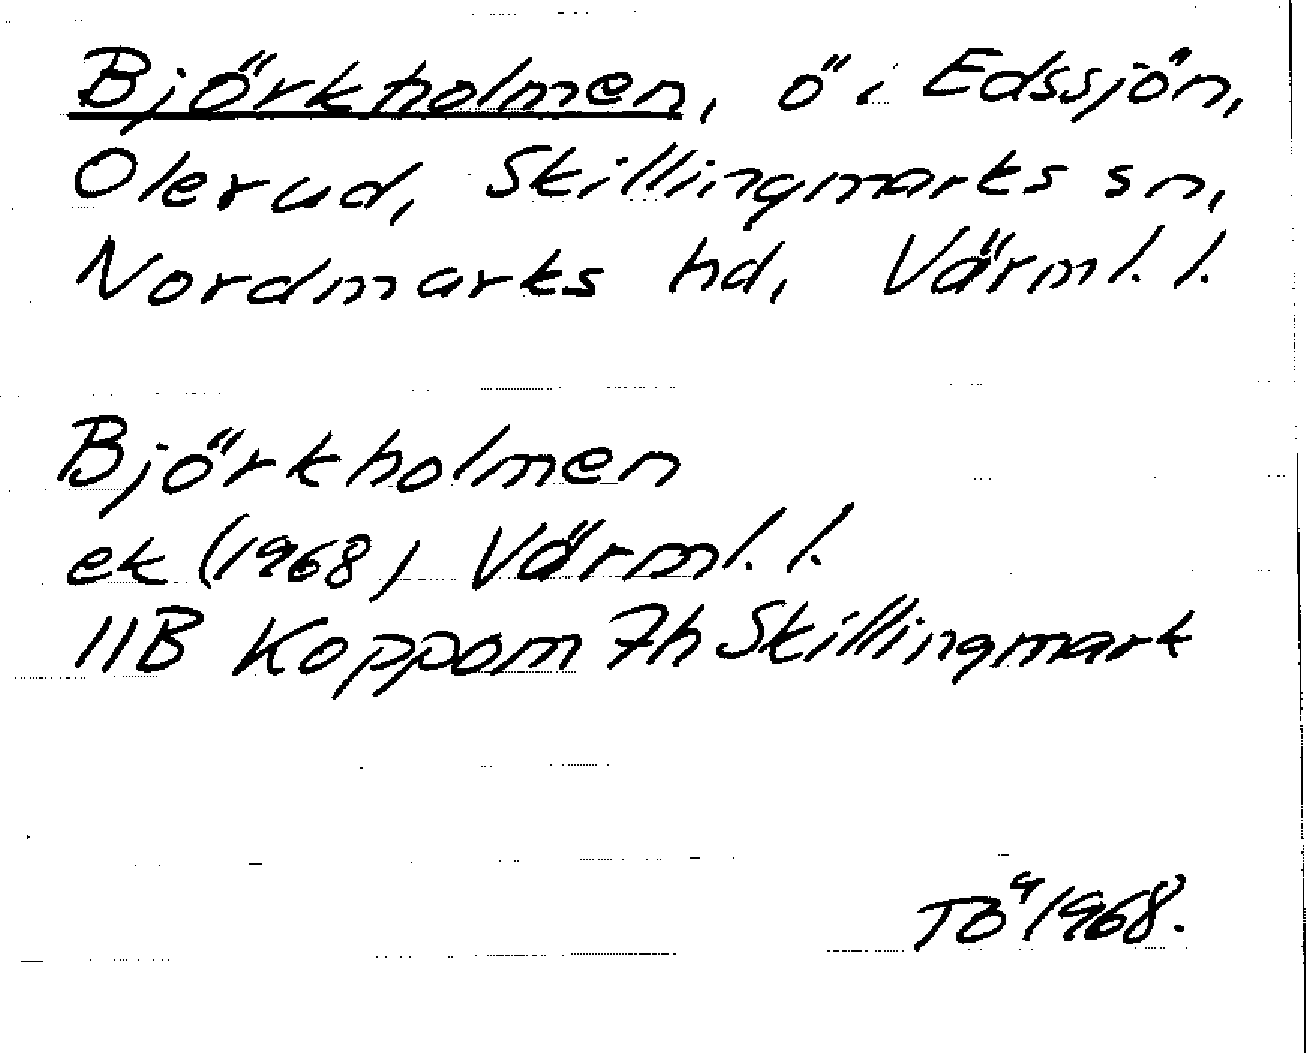 Björkholmen, ö i Edssjön,
Olerud, Skillingmarks sn,
Nordmarks hd, Värml. l.
Björkholmen
ek (1968) Värml. l.
11B Koppom 7h Skillingmark
TÖ 1968.